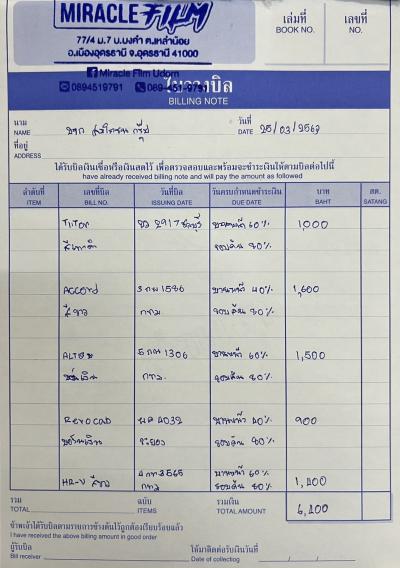 MIRACLE FILM
77/4 ม.7 บ.บงคำ ต.เหล่าน้อย
อ.เมืองอุดรธานี จ.อุดรธานี 41000
Miracle Film Udorn
0894519791 089-451-9791
เล่มที่ BOOK NO.
เลขที่ NO.
ใบวางบิล
BILLING NOTE
นาม NAME
วันที่ DATE 25/03/2567
ที่อยู่ ADDRESS
ได้รับบิลเงินเชื่อหรือเงินสดไว้ เพื่อตรวจสอบและพร้อมจะชำระเงินให้ตามบิลต่อไปนี้
have already received billing note and will pay the amount as followed
ลำดับที่ ITEM เลขที่บิล BILL NO. วันที่บิล ISSUING DATE วันครบกำหนดชำระเงิน DUE DATE บาท BAHT สต. SATANG
2917 บานหน้า 60% 1,000
รอบคัน 80%
ACCORD 1586 บานหน้า 40% 1,600
สีขาว กทม รอบคัน 80%
1306 บานหน้า 60% 1,500
กทม. รอบคัน 80%
Revo CAB 4032 บานหน้า 40% 900
ระยอง รอบคัน 80%
3565 บานหน้า 60%
HR-V กทม รอบคัน 80% 1,100
รวม TOTAL ฉบับ ITEMS รวมเงิน TOTAL AMOUNT 6,100
ข้าพเจ้าได้รับบิลตามรายการข้างต้นไว้ถูกต้องเรียบร้อยแล้ว
I have received the above billing amount in good order
ผู้รับบิล Bill receiver
ให้มาติดต่อรับเงินวันที่ Date of collecting / /